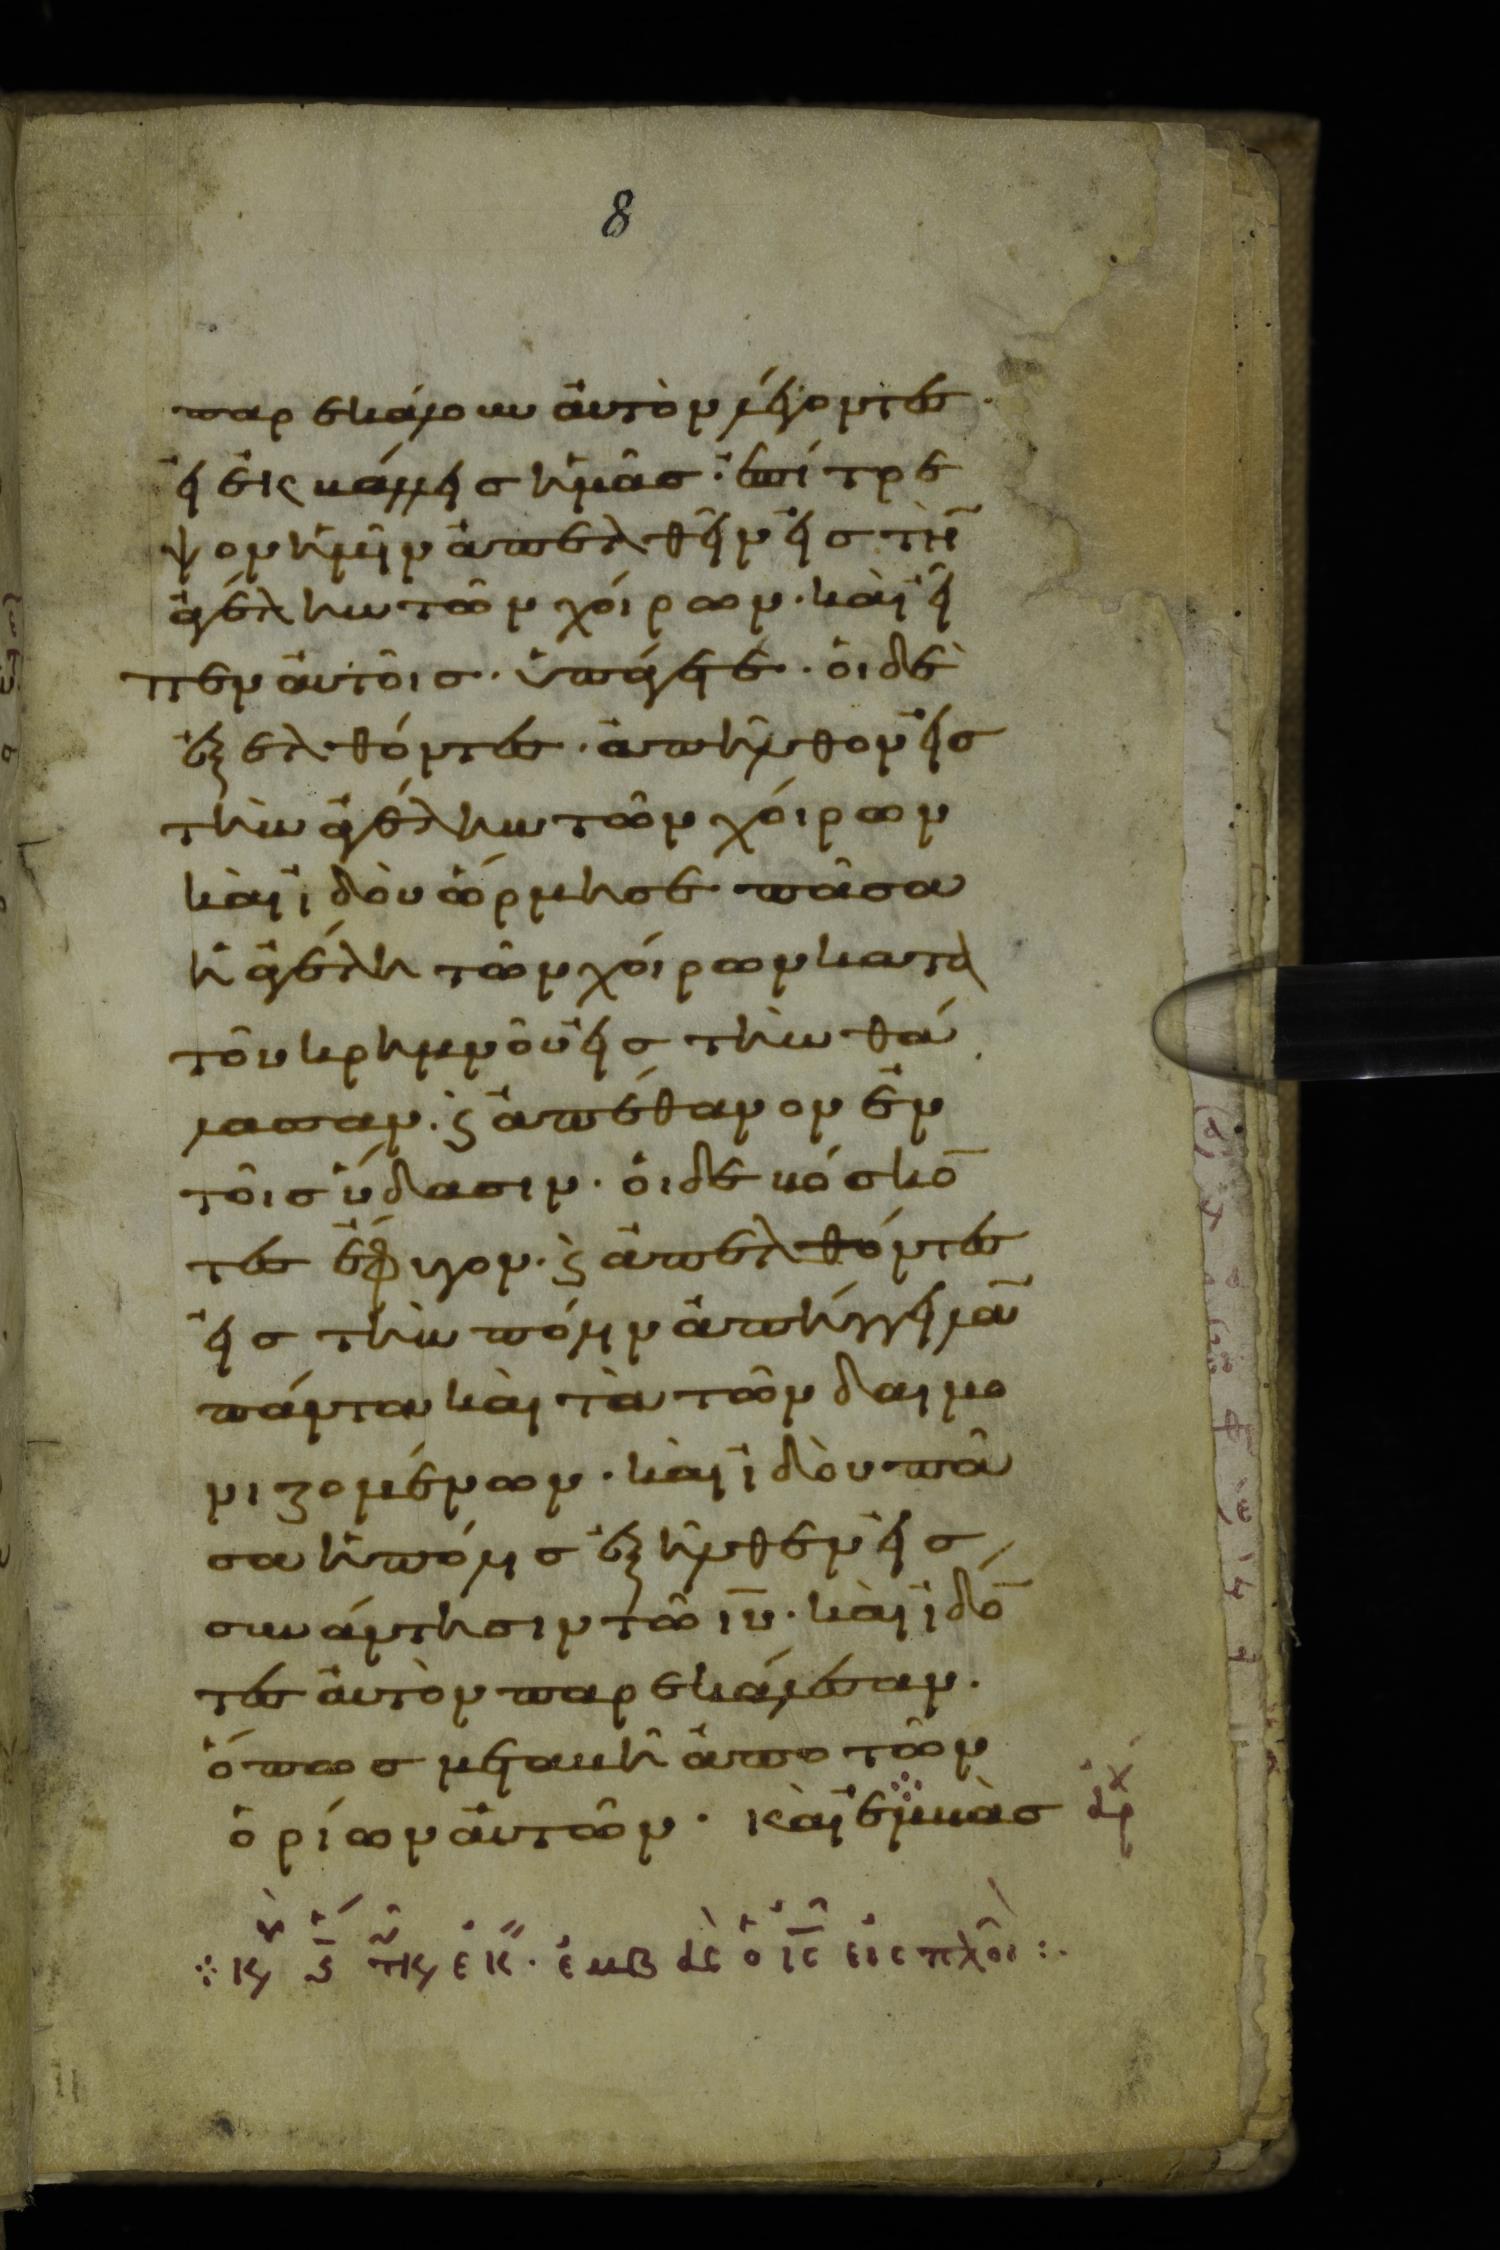 8
παρεκάλουν ἀυτὸν λέγοντες·
ἐι ἐκβάλλεις ἡμᾶς· ἐπίτρε
ψον ἡμῖν ἀπελθεῖν εἰς τὴν
ἀγέλην τῶν χοίρων· καὶ εἶ
πεν ἀυτοῖς· ὑπάγετε· ὁι δὲ
ἐξελθόντες· ἀπῆλθον εἰς
τὴν ἀγέλην τῶν χοίρων
καὶ ἰδοὺ ὥρμησε πᾶσα
ἡ ἀγέλη τῶν χοίρων κατὰ
τοῦ κρημνοῦ εἰς τὴν θά
λασσαν· ϗ ἀπέθανον ἐν
τοῖς ὕδασιν· ὁι δὲ βόσκο̅
τες ἔφυγον· ϗ ἀπελθόντες
εἰς τὴν πόλιν ἀπήγγειλα̅
πάντα καὶ τὰ τῶν δαιμο
νιζομένων· καὶ ἰδοὺ πᾶ
σα ἡ πόλις ἐξῆλθεν εἰς
συνάντησιν τῶ ιυ̅· καὶ ἰδό̅
τες ἀυτὸν παρεκάλεσαν·
ὅπως μεταβῆ ἀπὸ τῶν
ὁρίων ἀυτῶν· καὶ ἐμβὰς ἀρχ